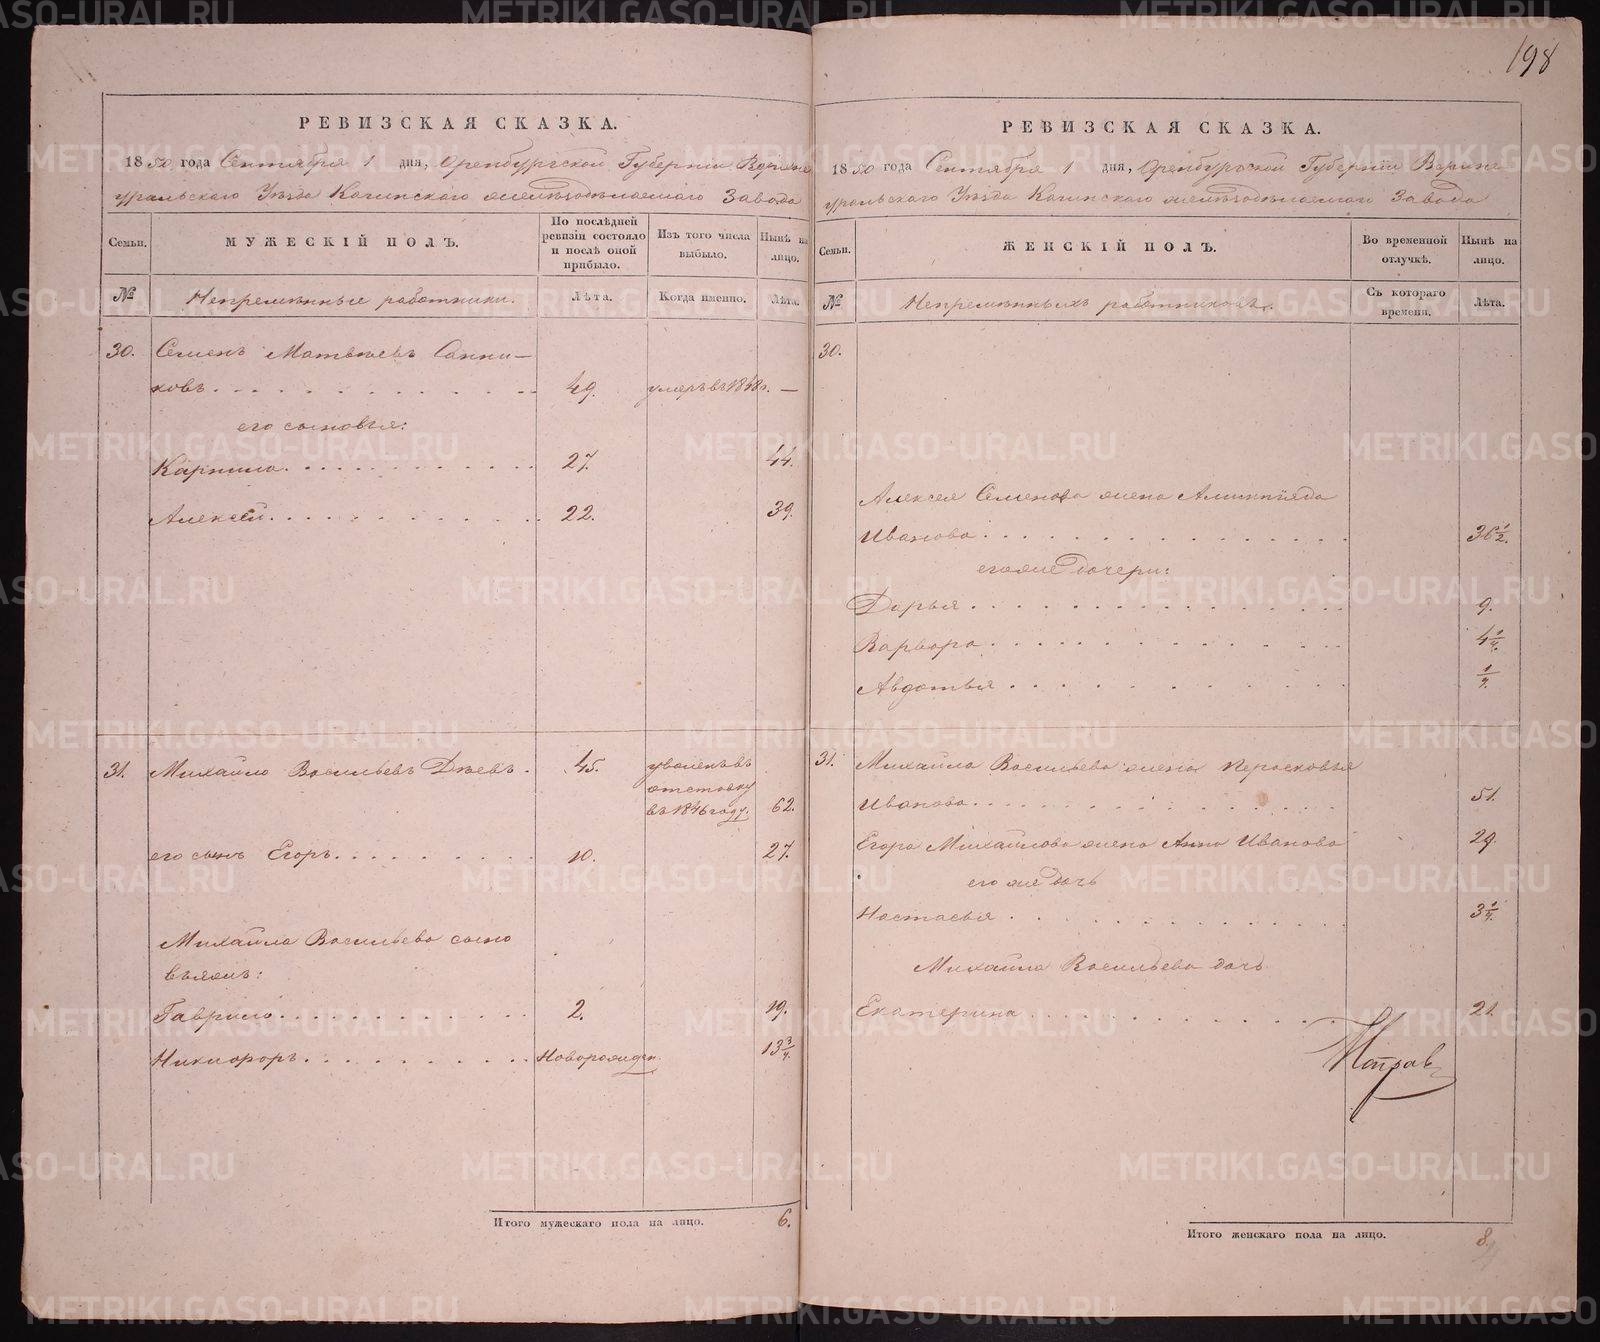 198
РЕВИЗСКАЯ СКАЗКА.
1850 года Сентября 1 дня, Оренбургской Губернiи Верхне
уральскаго Уѣзда Кагинскаго желѣзодѣлаемаго Завода
Семьи. МУЖЕСКIЙ ПОЛЪ. По послѣдней ревизiи состояло и послѣ оной прибыло. Изъ того числа выбыло. Нынѣ на лицо.
№ Непремѣнные работники. Лѣта. Когда именно. Лѣта.
30. Семенъ Матвѣевъ Санни-
ковъ 49. умеръ въ 1848 г. —
его сыновья:
Карнило 27. 44.
Алексѣй 22. 39.
31. Михайло Васильевъ Дѣевъ. 45. уволенъ въ
отставку
въ 1846 году. 62.
его сынъ Егоръ 10. 27.
Михайла Васильева сыно
вья:
Гаврило 2. 19.
Никифоръ Новорожден. 13 3/4.
Итого мужескаго пола на лицо. 6.
РЕВИЗСКАЯ СКАЗКА.
1850 года Сентября 1 дня, Оренбургской Губернiи Верхне-
уральскаго Уѣзда Кагинскаго желѣзодѣлаемаго Завода
Семьи. ЖЕНСКIЙ ПОЛЪ. Во временной отлучкѣ. Нынѣ на лицо.
№ Непремѣнныхъ работниковъ. Съ котораго времени. Лѣта.
30.
Алексея Семенова жена
Иванова 36 1/2.
его же дочери:
Дарья 9.
Варвара 4 1/4.
Авдотья 1/4.
31. Михайла Васильева жена Пярасковья
Иванова 51.
Егора Михайлова жена Анна Иванова 29.
его же дочь
Настасья 3 1/4.
Михайла Васильева дочь
Екатерина 21.
Итого женскаго пола на лицо. 8.
METRIKI.GASO-URAL.RU